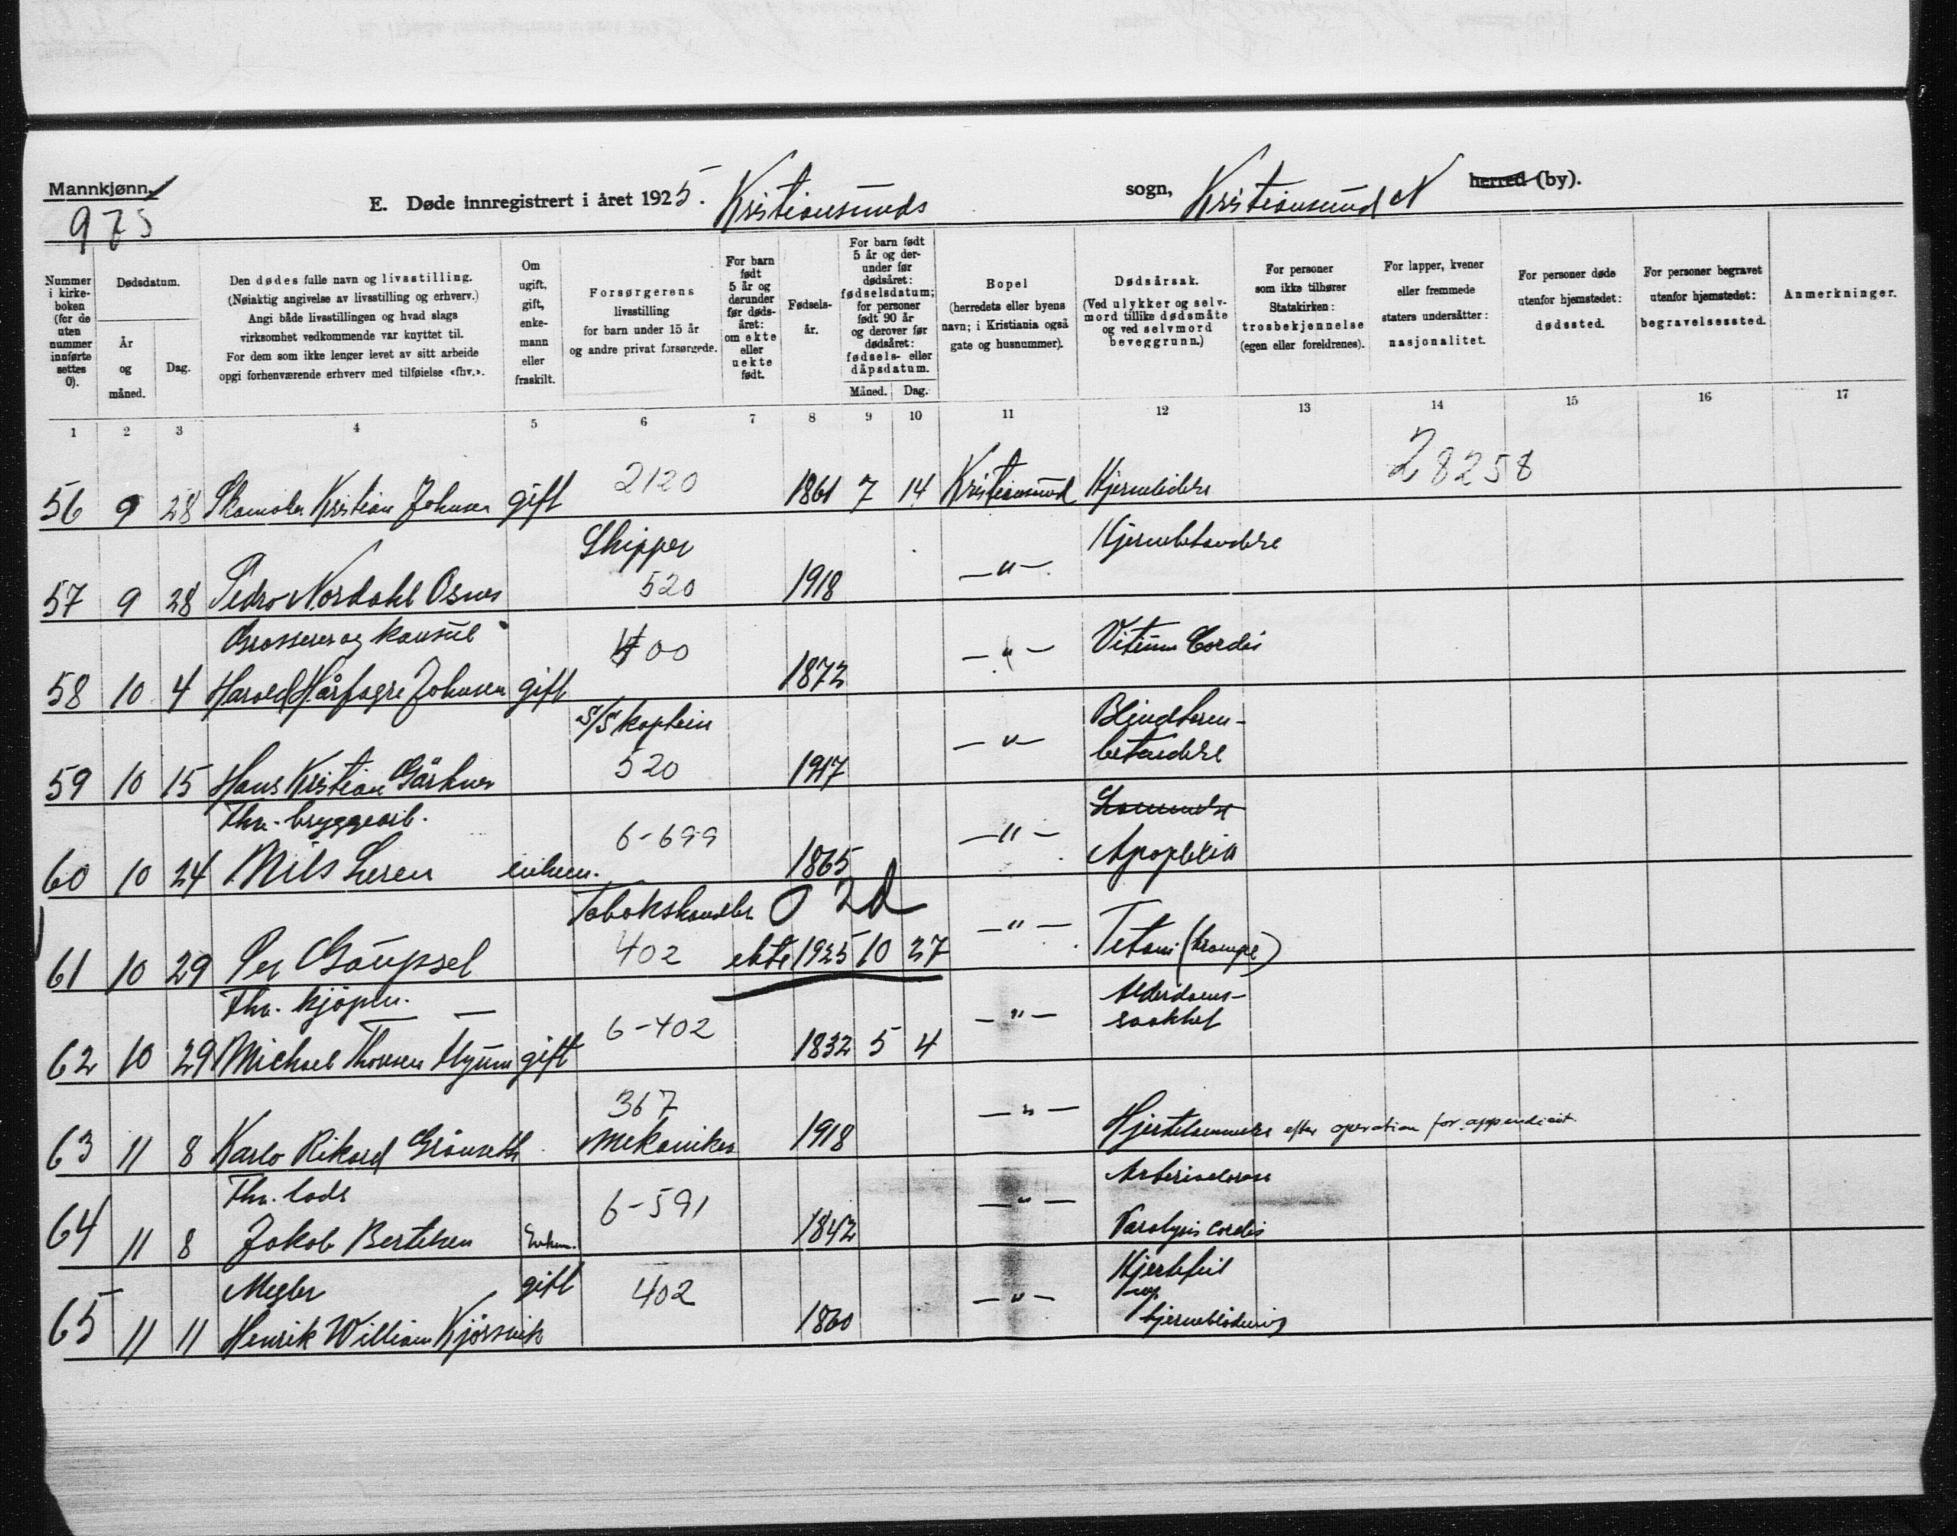 Mannkjønn.
975
E. Døde innregistrert i året 1925. Kristiansunds sogn, Kristiansund N herred (by).
Nummer i kirkeboken (for de uten nummer innførte settes 0).
Dødsdatum.
År og måned.
Dag.
Den dødes fulle navn og livsstilling.
(Nøiaktig angivelse av livsstilling og erhverv.)
Angi både livsstillingen og hvad slags
virksomhet vedkommende var knyttet til.
For dem som ikke lenger levet av sitt arbeide
opgi forhenværende erhverv med tilføielse «fhv.».
Om ugift, gift, enkemann eller fraskilt.
Forsørgerens
livsstilling
for barn under 15 år
og andre privat forsørgede.
For barn født 5 år og derunder før dødsåret: om ekte eller uekte født.
Fødselsår.
For barn født 5 år og derunder før dødsåret: fødselsdatum; for personer født 90 år og derover før dødsåret: fødsels- eller dåpsdatum.
Måned.
Dag.
Bopel
(herredets eller byens
navn; i Kristiania også
gate og husnummer).
Dødsårsak.
(Ved ulykker og selvmord tillike dødsmåte og ved selvmord beveggrunn.)
For personer
som ikke tilhører
Statskirken:
trosbekjennelse
(egen eller foreldrenes).
For lapper, kvener
eller fremmede
staters undersåtter:
nasjonalitet.
For personer døde
utenfor hjemstedet:
dødssted.
For personer begravet
utenfor hjemstedet:
begravelsessted.
Anmerkninger.
1 2 3 4 5 6 7 8 9 10 11 12 13 14 15 16 17
2120
28258
56 9 28 Kristian Johnsen gift 1861 7 14 Kristiansund
Skipper
520
57 9 28 Pedro Nordahl Osnes 1918 —"—
Grosserer og konsul
400
Vitium Cordis
58 10 4 Harald Hårfagre Johnsen gift 1872 —"—
S/S kaptein
520
Blindtarm-
betendelse
59 10 15 Hans Kristian 1917 —"—
Fhv. bryggearb.
6-699
60 10 24 Nils Leren enkem. 1865 —"— Apoplexia
Tobakshandler 0 2d
402
61 10 29 Per ekte 1925 10 27 —"— Tetani (krampe)
Fhv. kjøpm.
6-402
Alderdoms-
svakhet
62 10 29 Michael Thorsen gift 1832 5 4 —"—
367
63 11 8 Karlo Rikard Grønseth Mekaniker 1918 —"— Hjertelammelse efter operation for appendicit
Fhv. lods
6-591
64 11 8 Jakob Bertelsen Enkem. 1842 —"— Paralysis cordis
Megler gift
402
Hjertefeil
og
65 11 11 Henrik William Kjørsvik 1860 —"— hjerneblødning